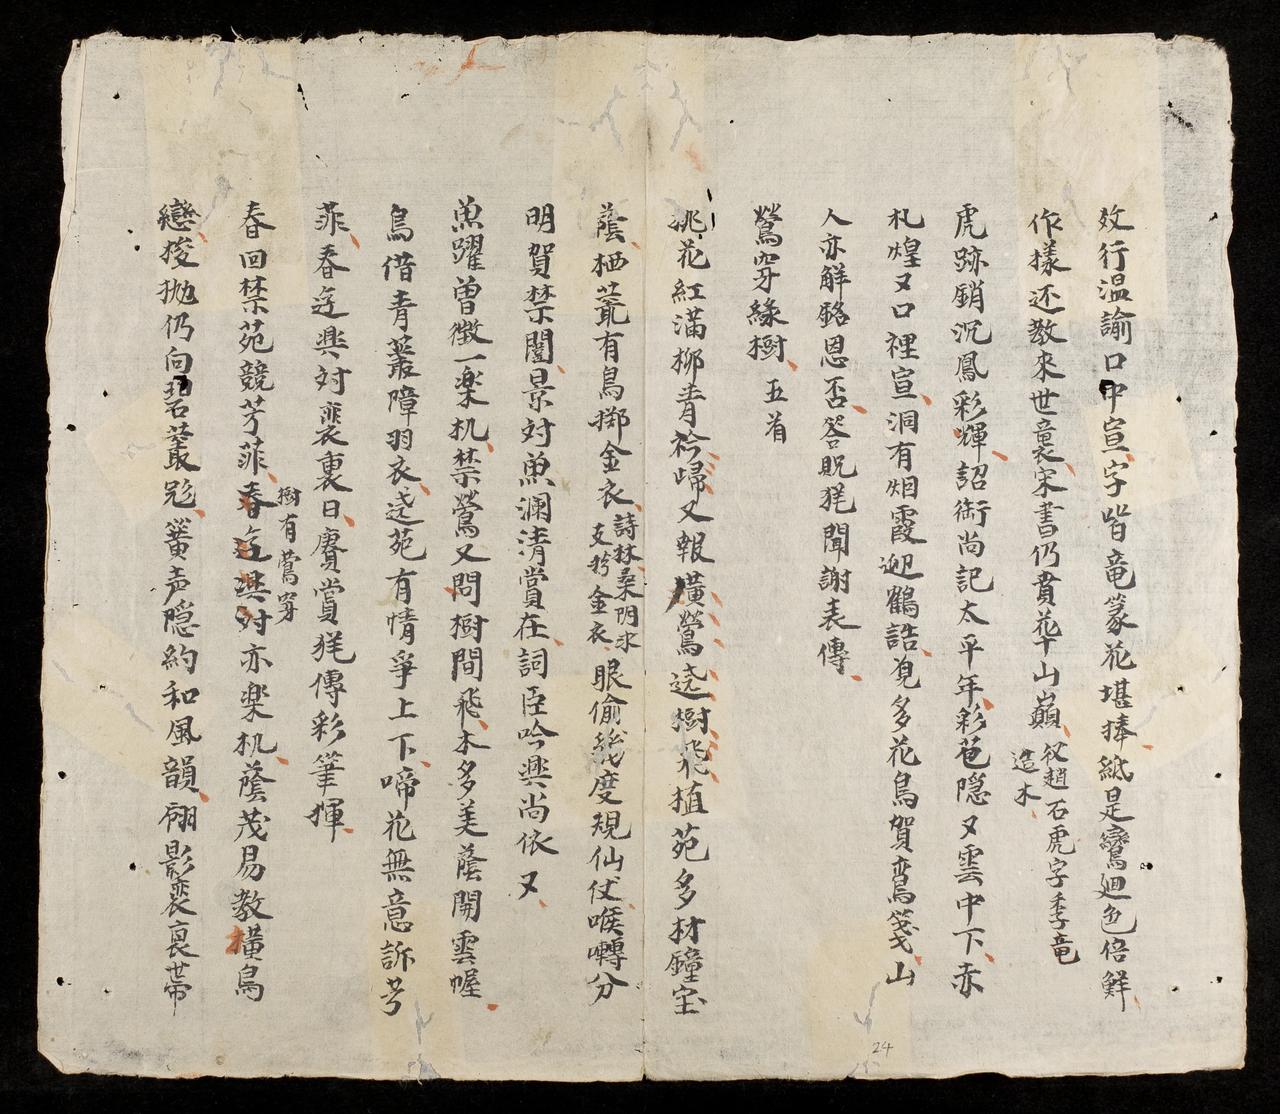 效行温諭口中宣字皆竜篆花堪捧紙是鸞廻色倍鮮
作様还教來世裏宋書仍貫花千山巔 仅趙石虎字季竜造木
虎跡銷沉鳳彩輝詔銜尚記太平年彩苞隐又雲中下赤
札煌又口裡宣洞有烟霞迎鶴誥覓多花鳥賀鸞箋山
人亦解銘恩否答貺猶聞謝表傳
鶯穿緣樹 五首
桃花紅滿柳青衿歸又報橫鶯遶樹飛植苑多材鐘宝
蔭栖萓有鳥擲金衣 詩林桑明水支矜金衣 眼偷幾度規仙仗喉囀分
明賀禁闈景対魚瀾清賞在詞臣吟興尚依又
魚躍曾徵一楽机禁鶯又問樹間飛木多美蔭開雲幄
鳥借青叢障羽衣遶苑有情爭上下啼花無意訴芳
菲春迄興対裵裏日賡賞猶傳彩筆揮
春回禁苑競芳菲樹有鶯穿亦楽机蔭茂易教橫鳥
戀梭拋仍向碧叢迯簧声隐約和風韻翩影裵裏帯